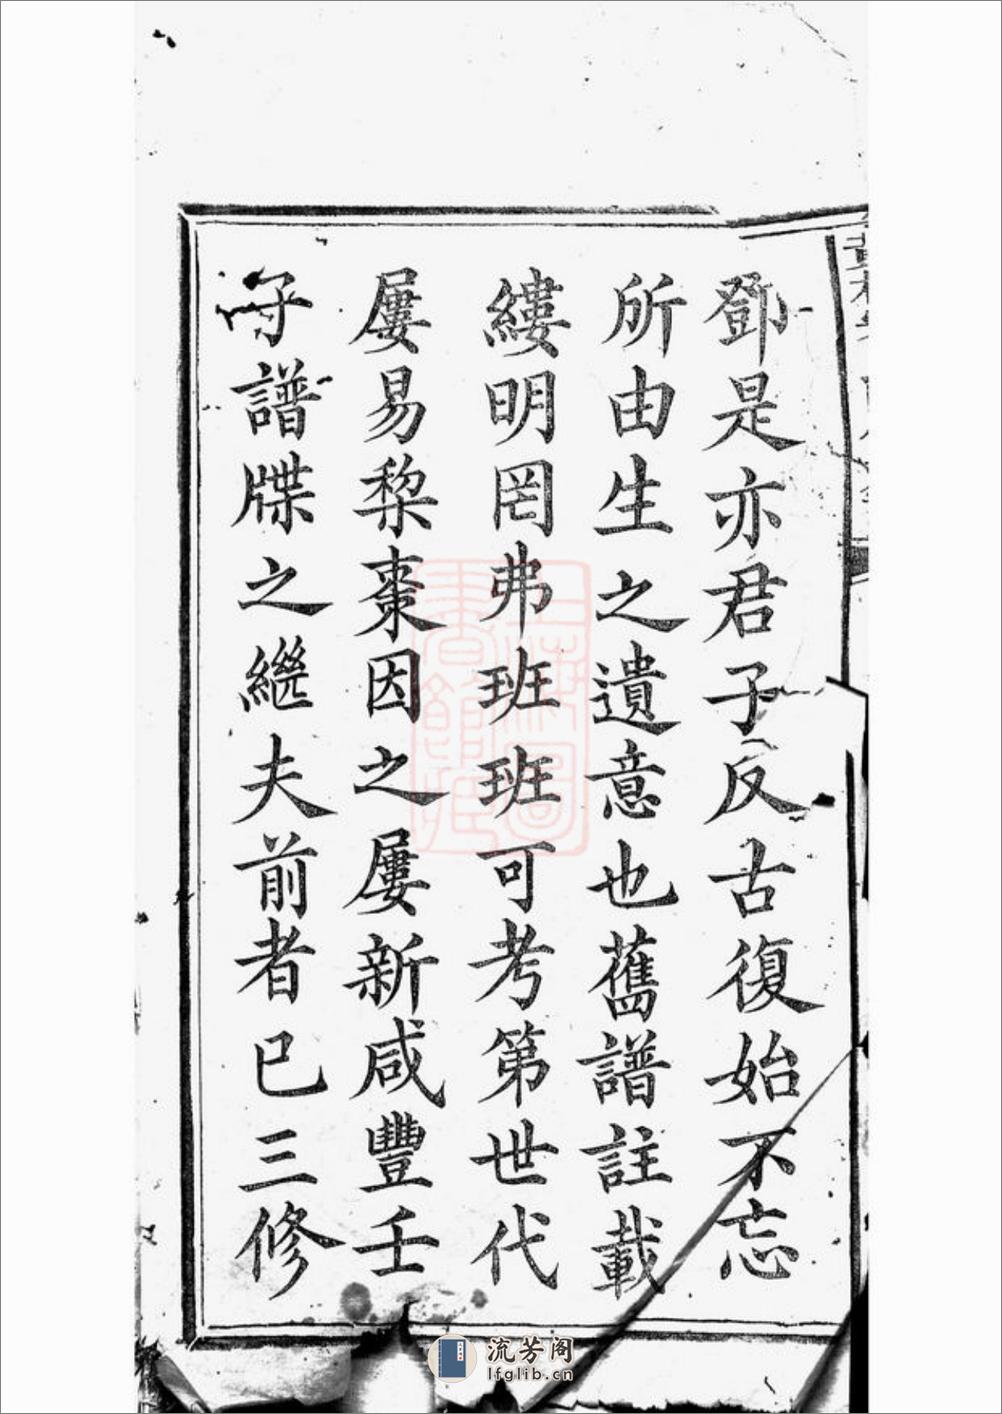 鄧是亦君子反古復始不忘
所由生之遺意也舊譜註載
縷明罔弗班班可考第世代
屢易棃棗因之屢新咸豐壬
子譜牒之繼夫前者已三修
上海圖書館藏
流芳阁
lfglib.cn